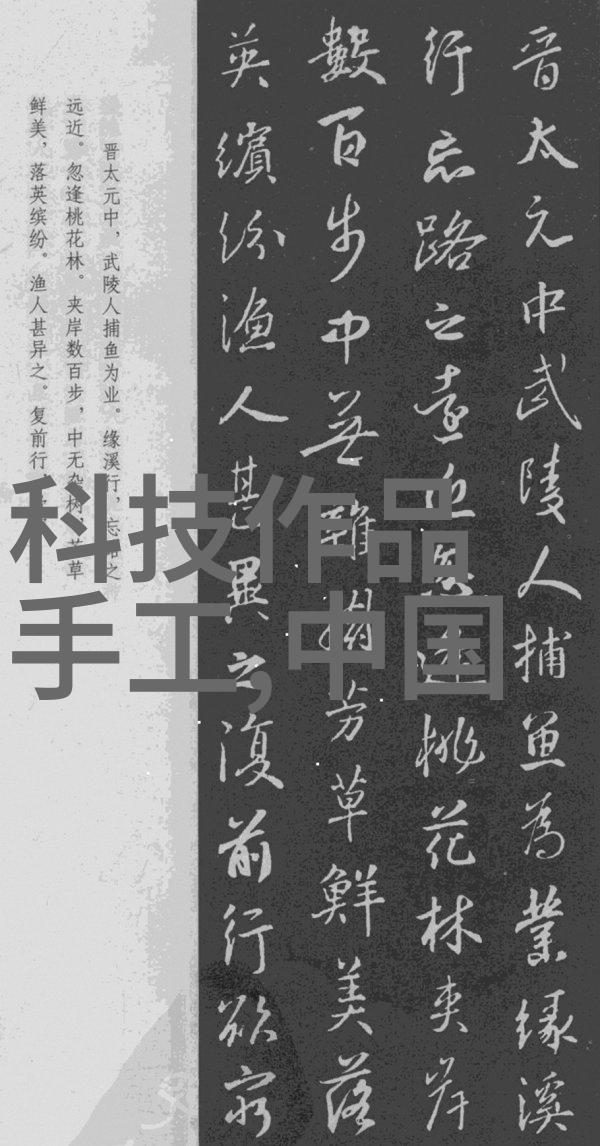 晋太元中武陵人捕魚為業緣溪
行忘路之遠近忽逢桃花林夾岸
數百步中無雜樹芳草鮮美落
英繽紛漁人甚異之復前行欲窮
晋太元中，武陵人捕鱼为业。缘溪行，忘路之
远近。忽逢桃花林。夹岸数百步，中无杂树，芳草
鲜美，落英缤纷。渔人甚异之。复前行，
科技作品
手工,中国